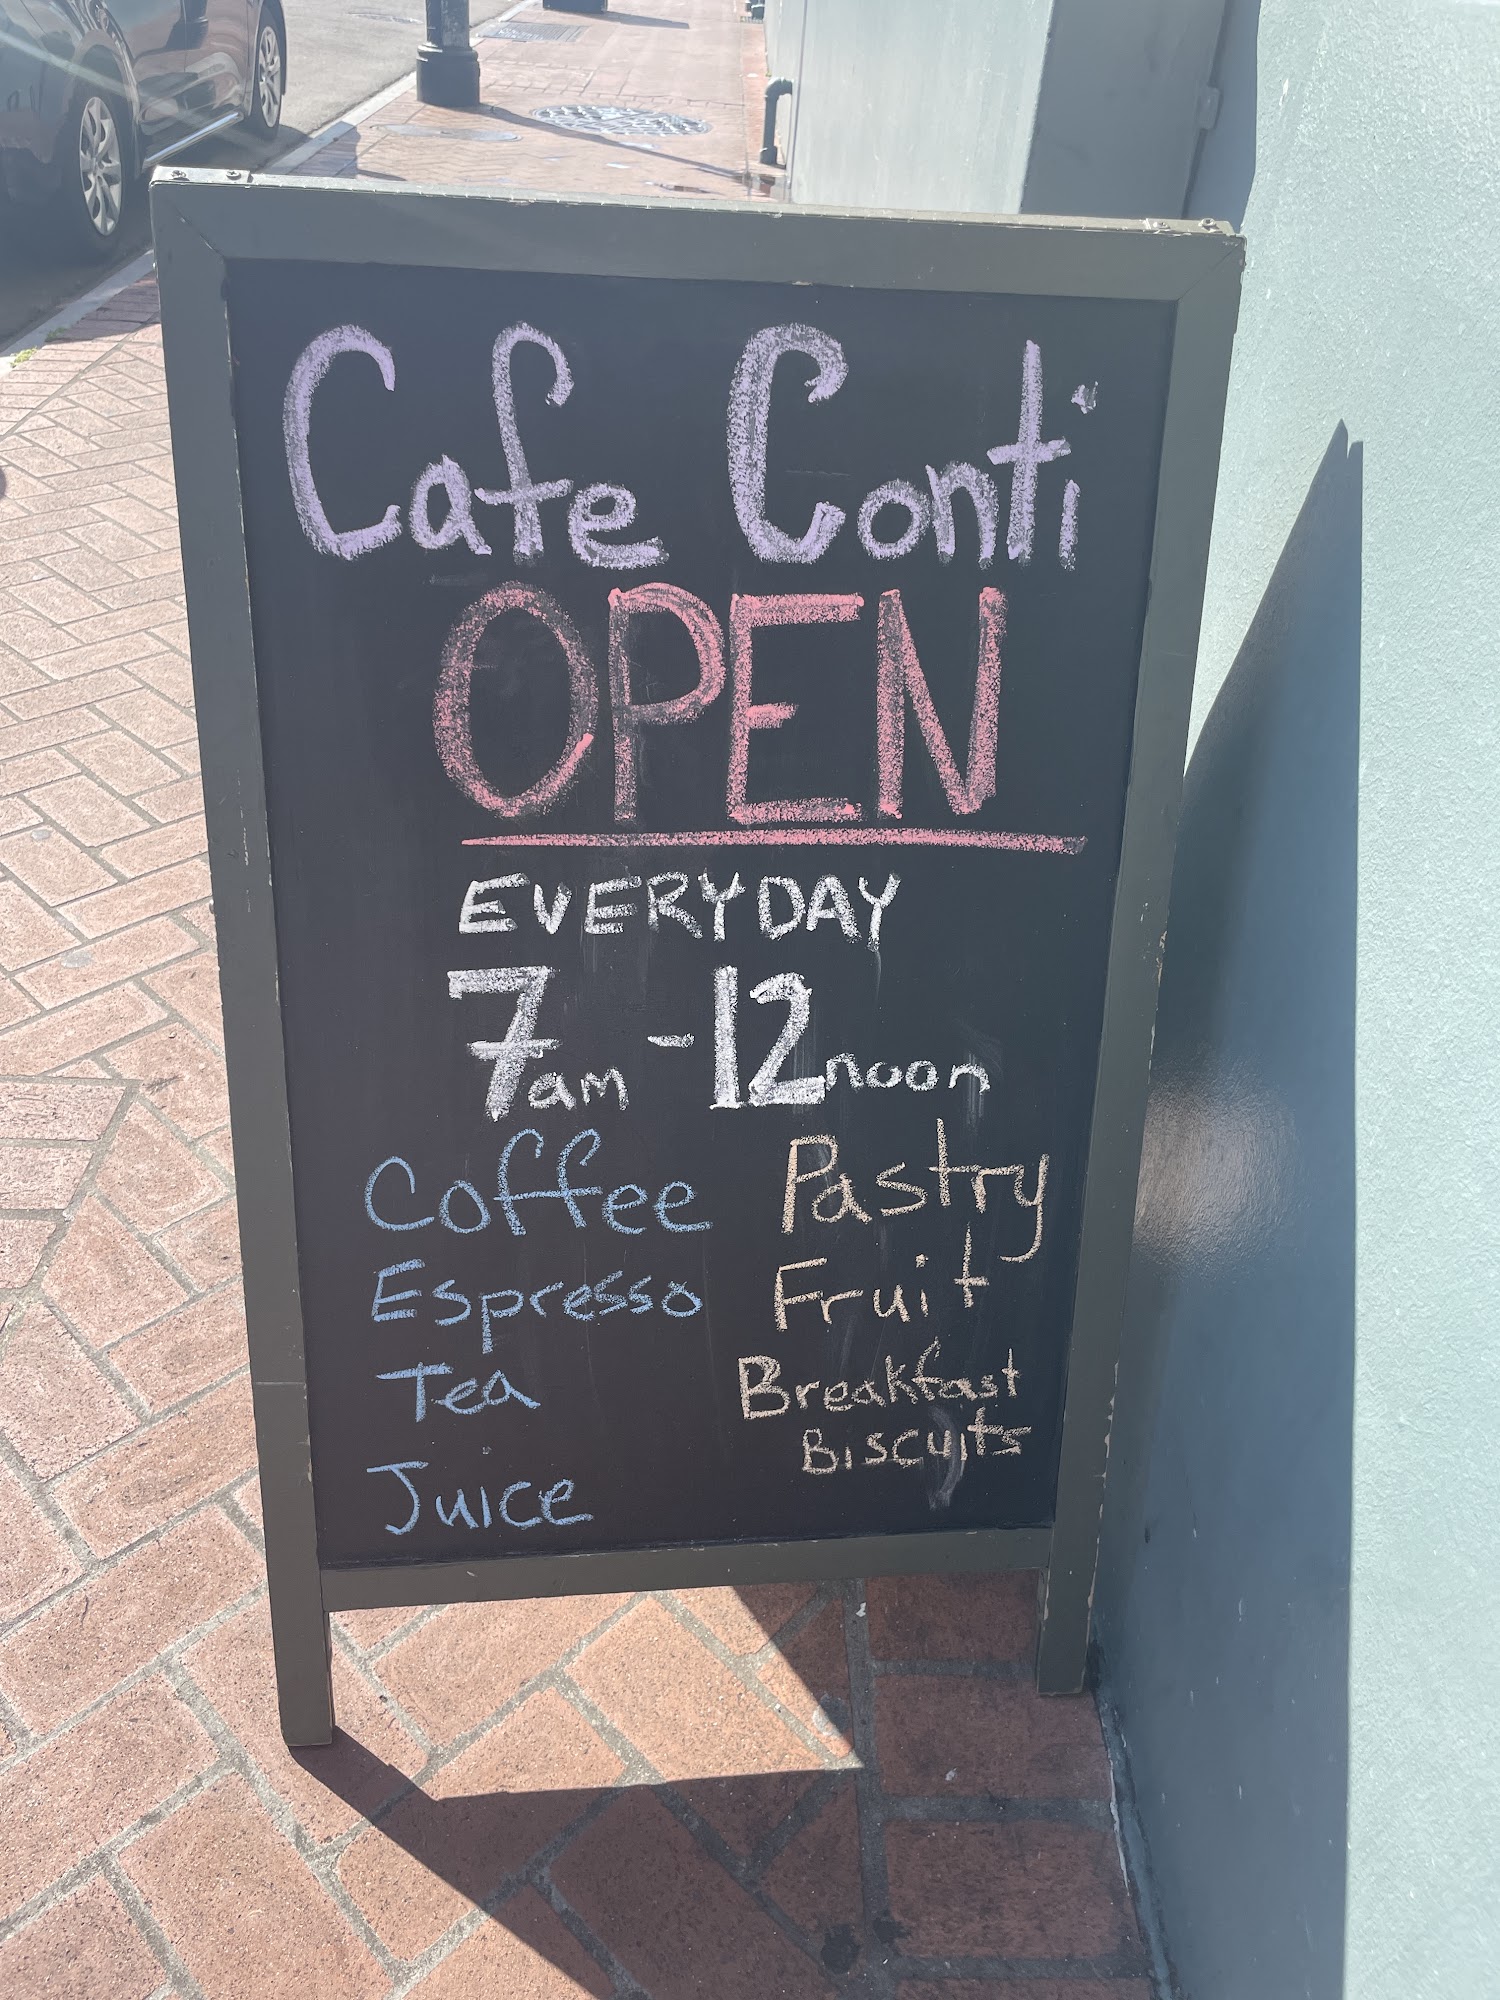 Cafe Conti
OPEN
EVERYDAY
7am - 12noon
Coffee
Espresso
Tea
Juice
Pastry
Fruit
Breakfast
Biscuits